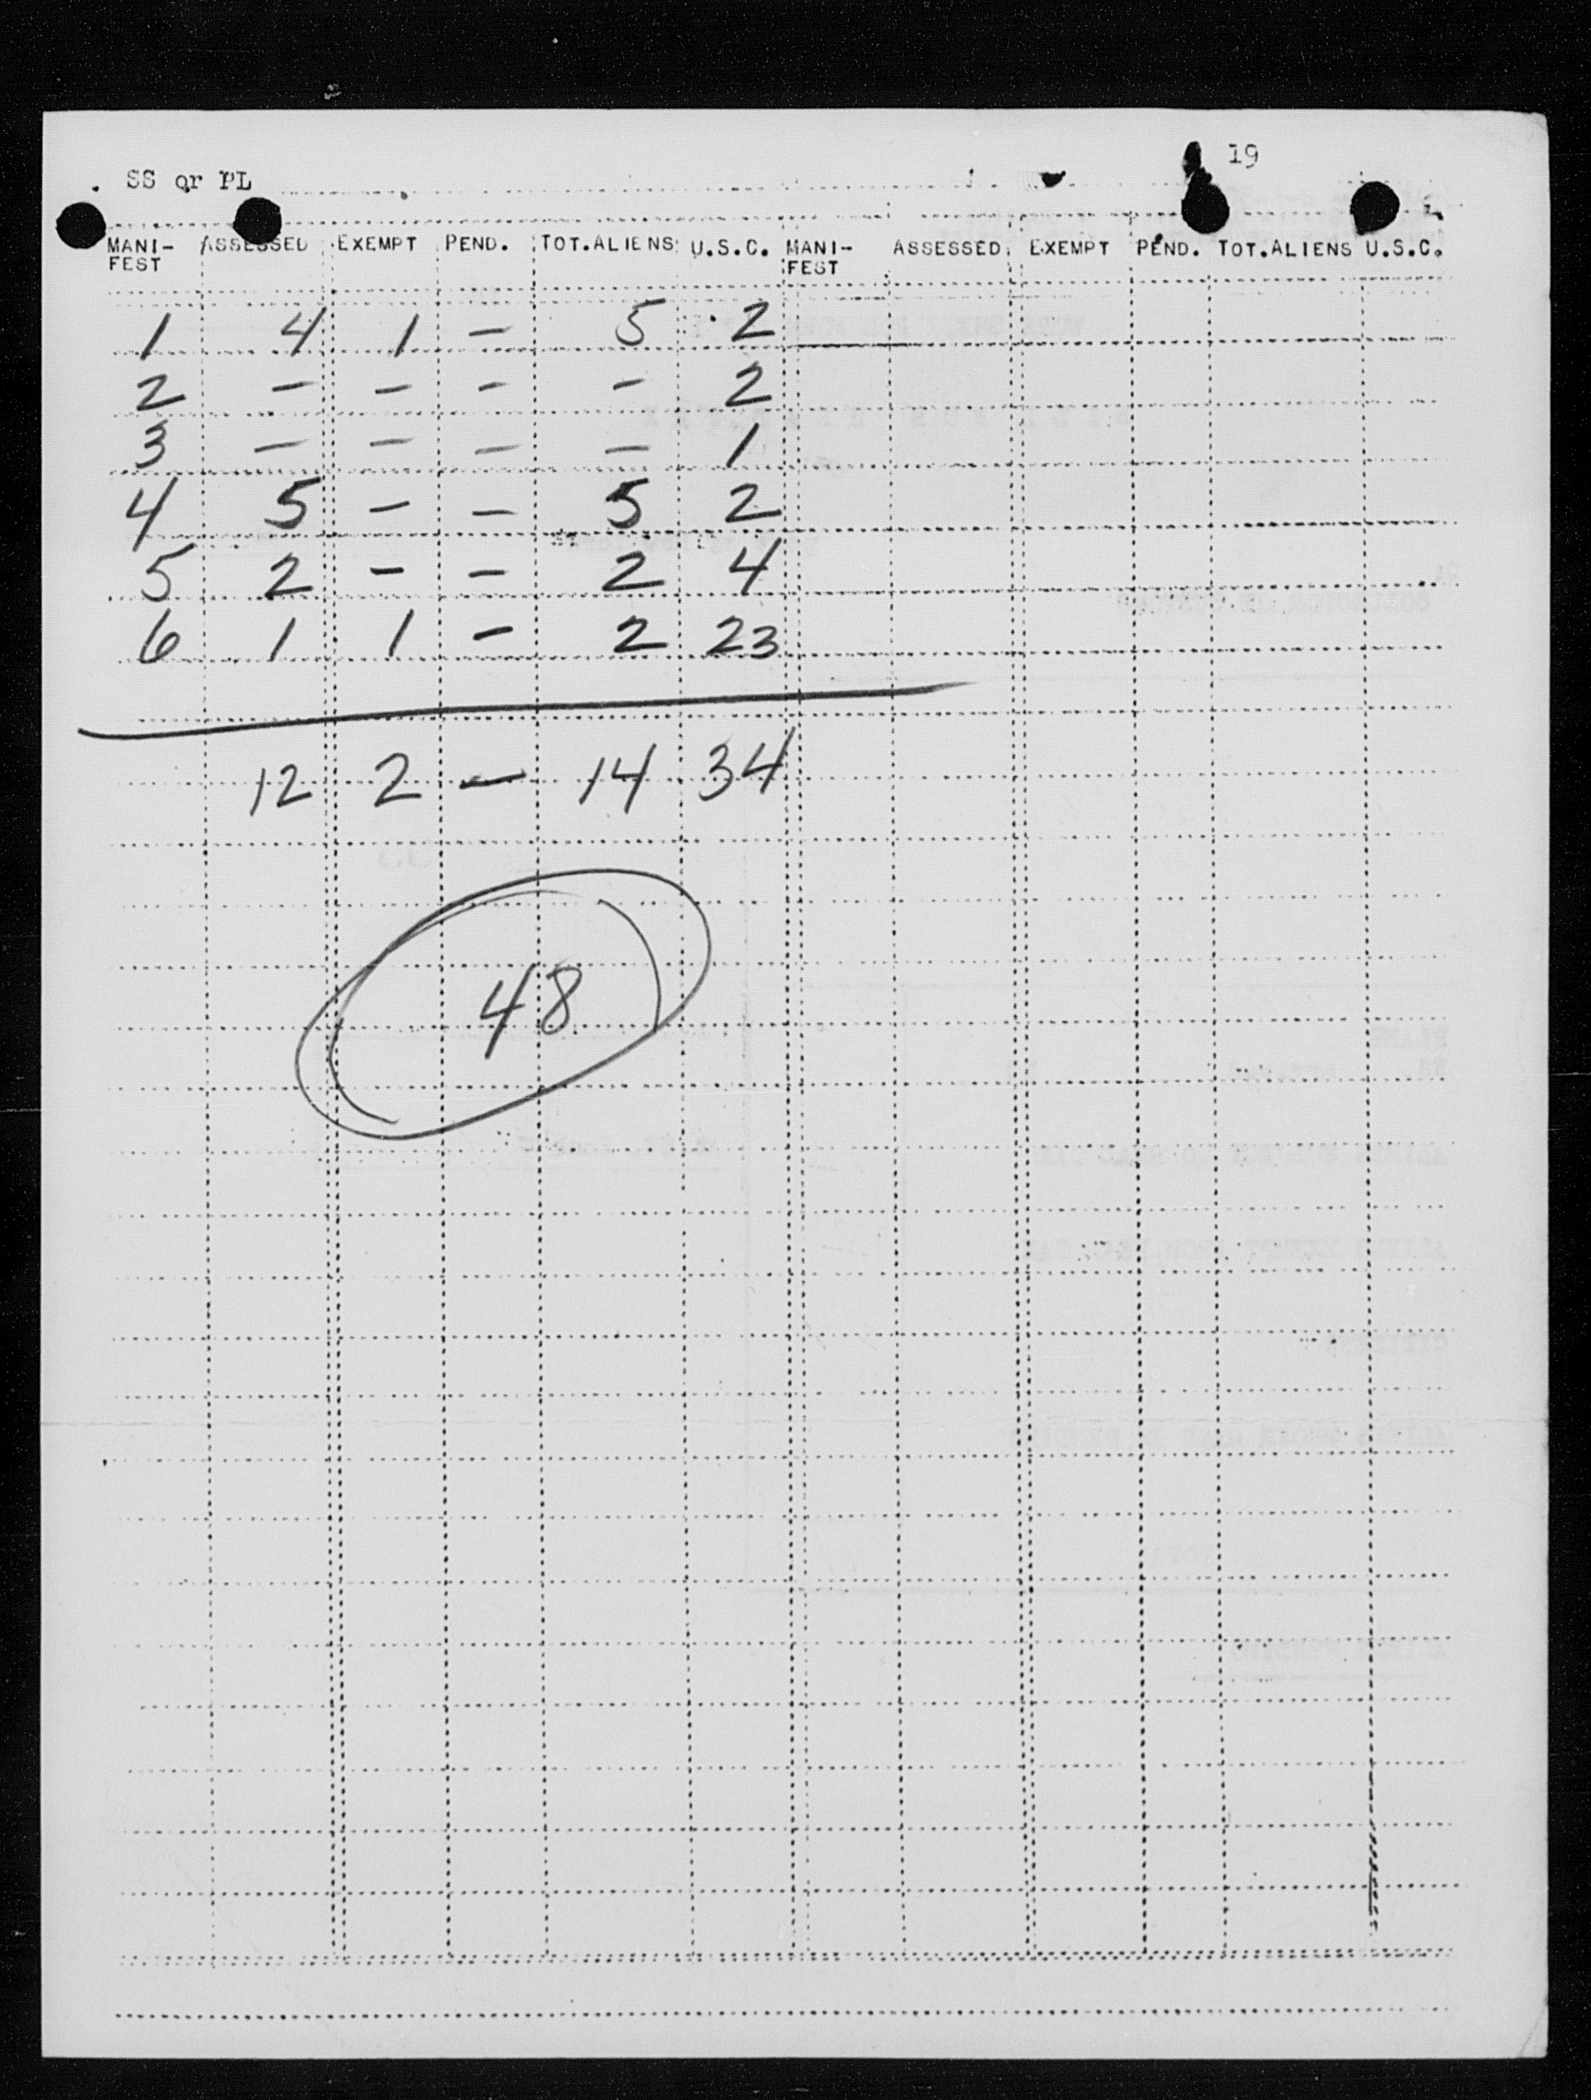 19
SS or PL
MANI- ASSESSED EXEMPT PEND. TOT.ALIENS U.S.C. MANI- ASSESSED EXEMPT PEND. TOT.ALIENS U.S.C.
FEST FEST
1 4 1 - 5 2
2 - - - - 2
3 - - - - 1
4 5 - - 5 2
5 2 - - 2 4
6 1 1 - 2 23
12 2 - 14 34
48